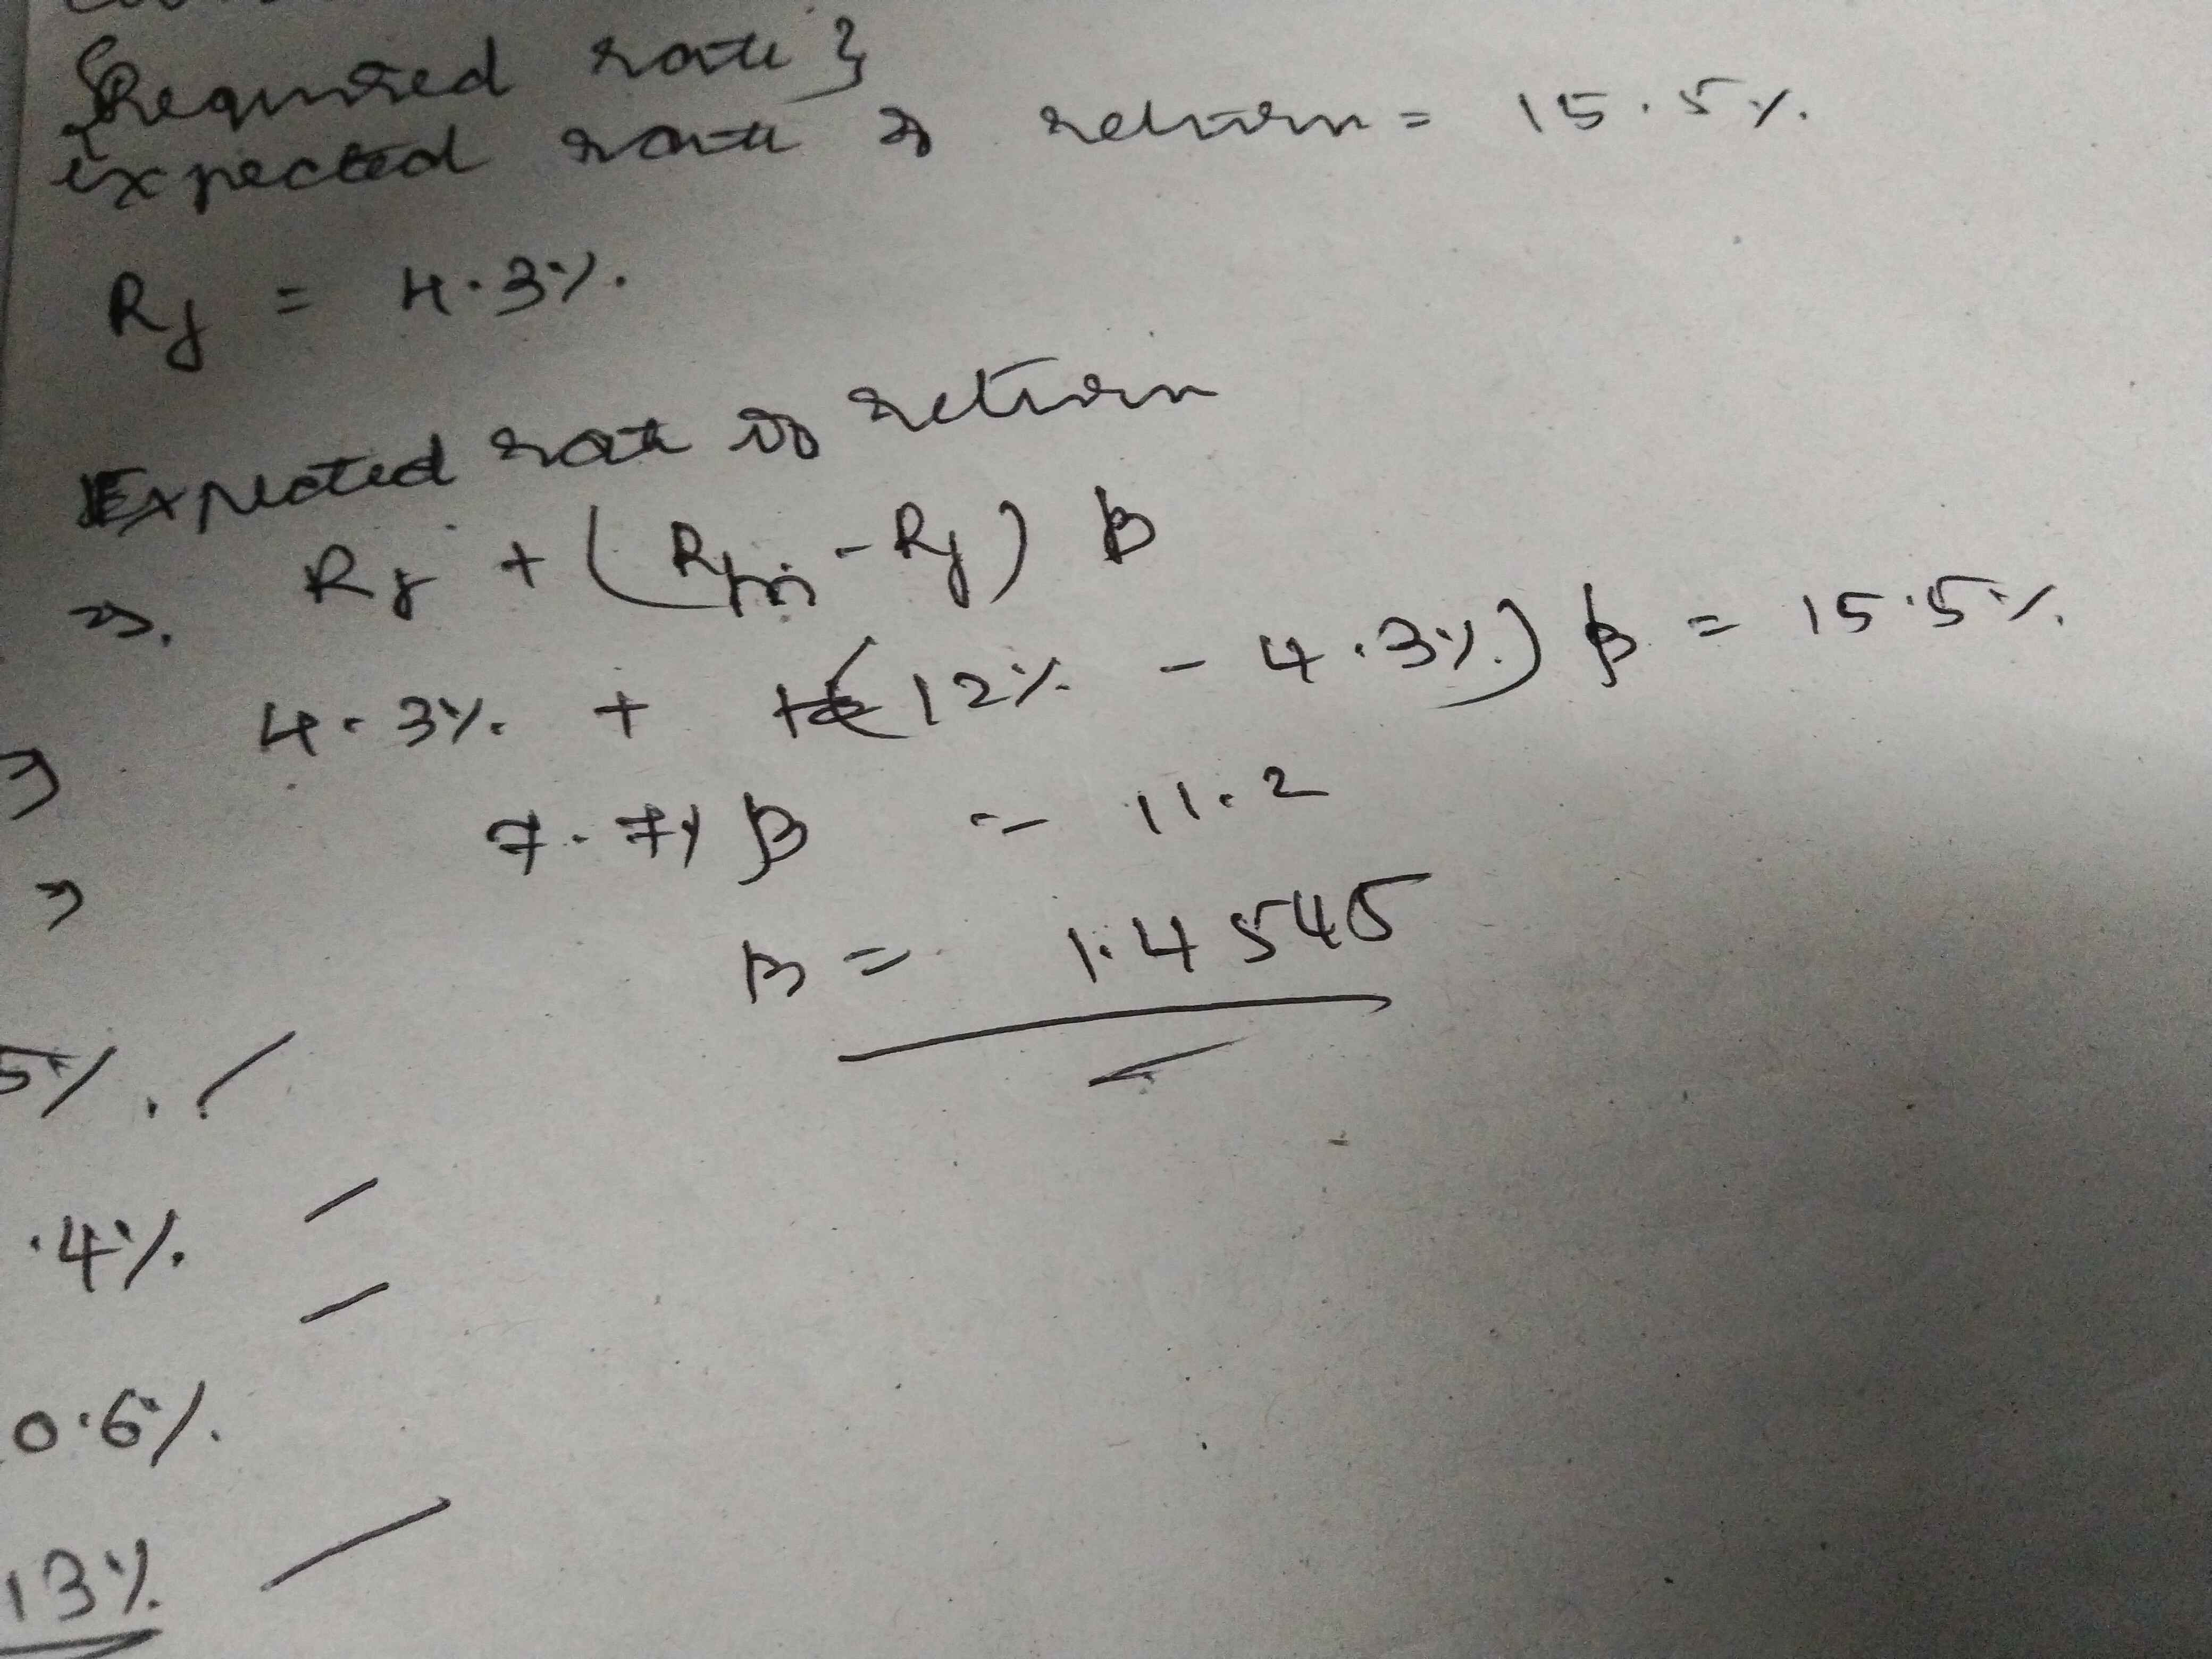 {Required rate}
expected rate of return = 15.5%.
Rf = 4.3%.
Expected rate of return
⇒. Rf + (Rm - Rf) β
⇒ 4.3% + (12% - 4.3%) β = 15.5%.
⇒ 7.7% β = 11.2
β = 1.4545
5%.
.4%.
0.6%.
13%.